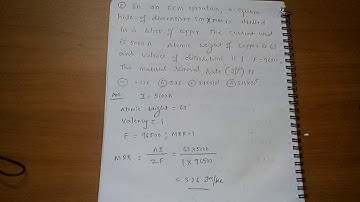 In an ECM operation, a square
hole of dimensions 5mm x 5mm is drilled
in a block of copper. The current used
is 5000 A. Atomic weight of copper is 63
and valence of dissolution is 1. F = 96500
The material removal rate (g/s) is
I = 5000A
Atomic weight = 63
Valency = 1
F = 96500 ; MRR = ?
MRR = AI / ZF = 63 x 5000 / 1 x 96500
= 3.26 g/sec